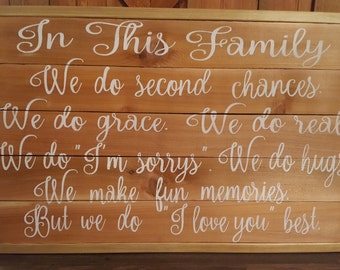 In This Family
We do second chances.
We do grace. We do real
We do "I'm sorrys". We do hugs
We make fun memories.
But we do "I love you" best.